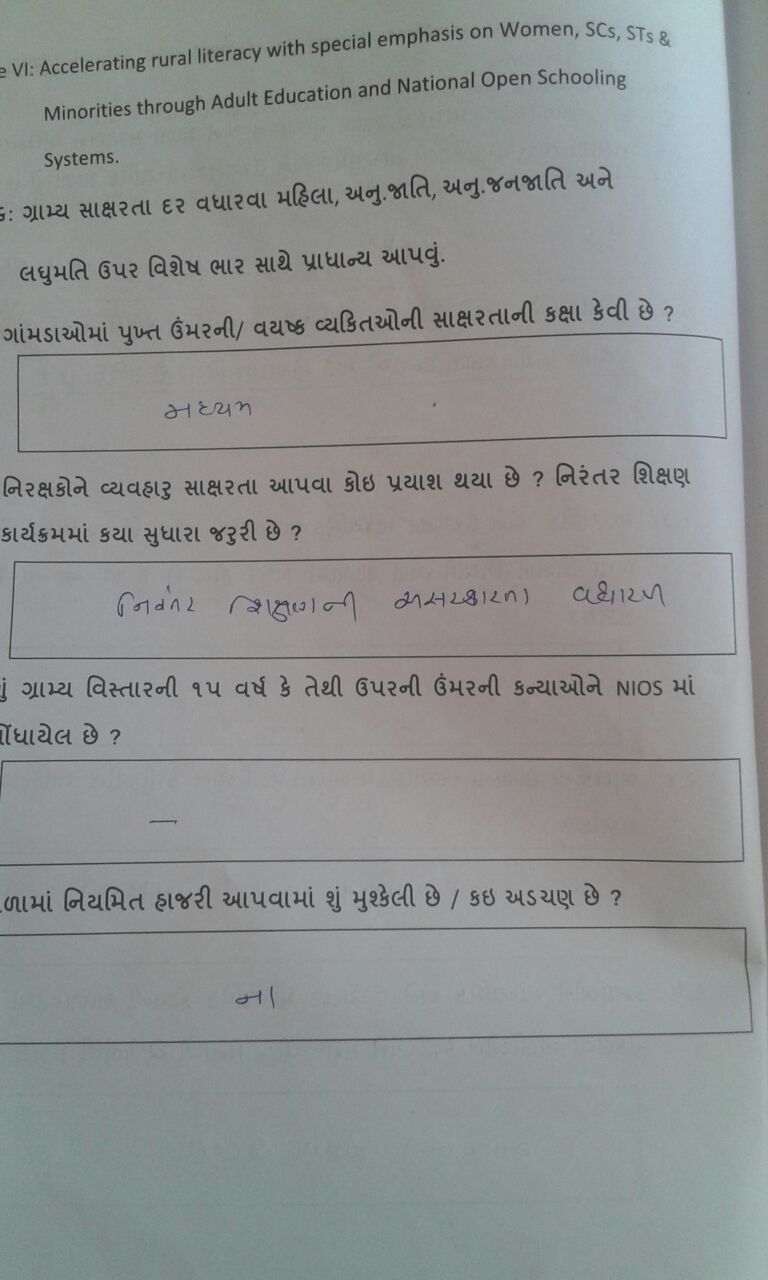 e VI: Accelerating rural literacy with special emphasis on Women, SCs, STs &
Minorities through Adult Education and National Open Schooling
Systems.
ગ્રામ્ય સાક્ષરતા દર વધારવા મહિલા, અનુ.જાતિ, અનુ.જનજાતિ અને
લઘુમતિ ઉપર વિશેષ ભાર સાથે પ્રાધાન્ય આપવું.
ગાંમડાઓમાં પુખ્ત ઉંમરની/ વયષ્ક વ્યકિતઓની સાક્ષરતાની કક્ષા કેવી છે ?
મધ્યમ
નિરક્ષકોને વ્યવહારુ સાક્ષરતા આપવા કોઇ પ્રયાશ થયા છે ? નિરંતર શિક્ષણ
કાર્યક્રમમાં કયા સુધારા જરુરી છે ?
શિક્ષણની
ગ્રામ્ય વિસ્તારની ૧૫ વર્ષ કે તેથી ઉપરની ઉંમરની કન્યાઓને NIOS માં
ોંધાયેલ છે ?
—
ળામાં નિયમિત હાજરી આપવામાં શું મુશ્કેલી છે / કઇ અડચણ છે ?
ના